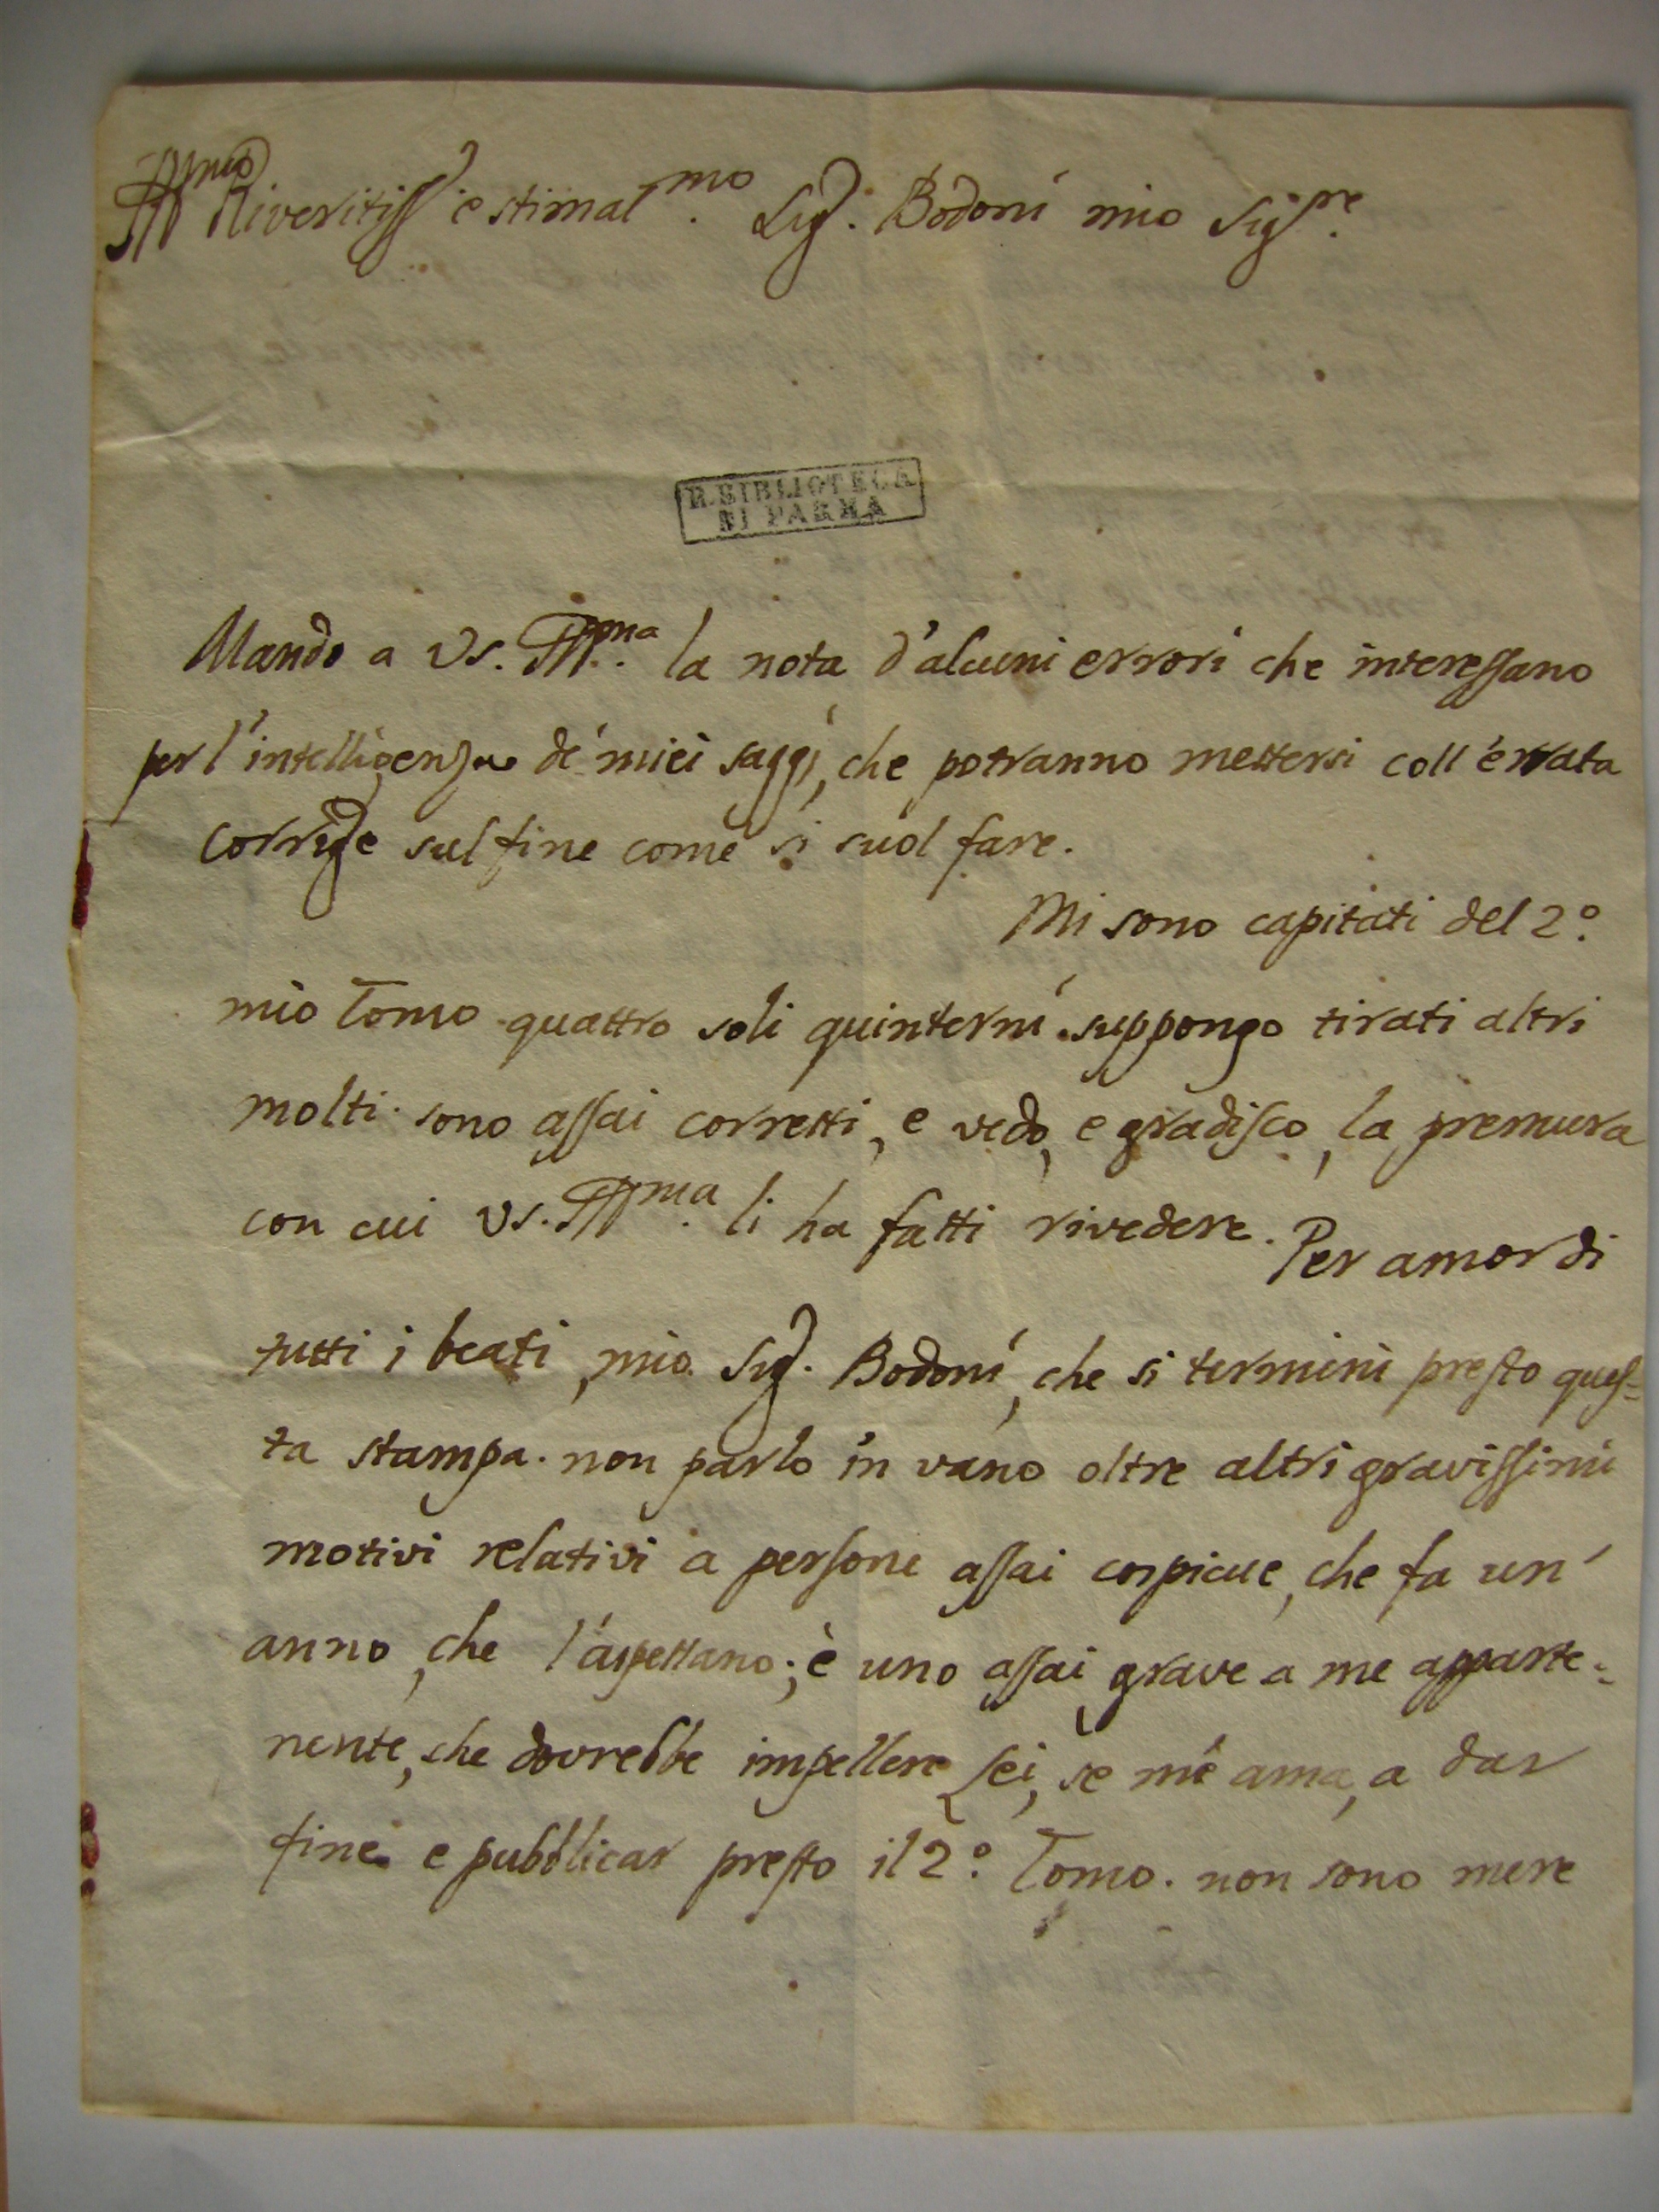 Ill.mo Riveritiss. e stimat.mo Sig. Bodoni mio Sig.re
R. BIBLIOTECA
DI PARMA
Mando a Vs. Ill.ma la nota d'alcuni errori che interessano
per l'intelligenza de' miei saggi, che potranno mettersi coll'errata
corrige sul fine come si suol fare.
Mi sono capitati del 2.o
mio Tomo quattro soli quinterni. suppongo tirati altri
molti. sono assai corretti, e vedo, e gradisco, la premura
con cui Vs. Ill.ma li ha fatti rivedere. Per amor di
tutti i beati, mio Sig. Bodoni, che si termini presto ques=
ta stampa. non parlo in vano oltre altri gravissimi
motivi relativi a persone assai cospicue, che fa un'
anno, che l'aspettano; è uno assai grave a me apparte=
nente, che dovrebbe impellere Lei, se m'è ama, a dar
fine e pubblicar presto il 2.o Tomo. non sono mere